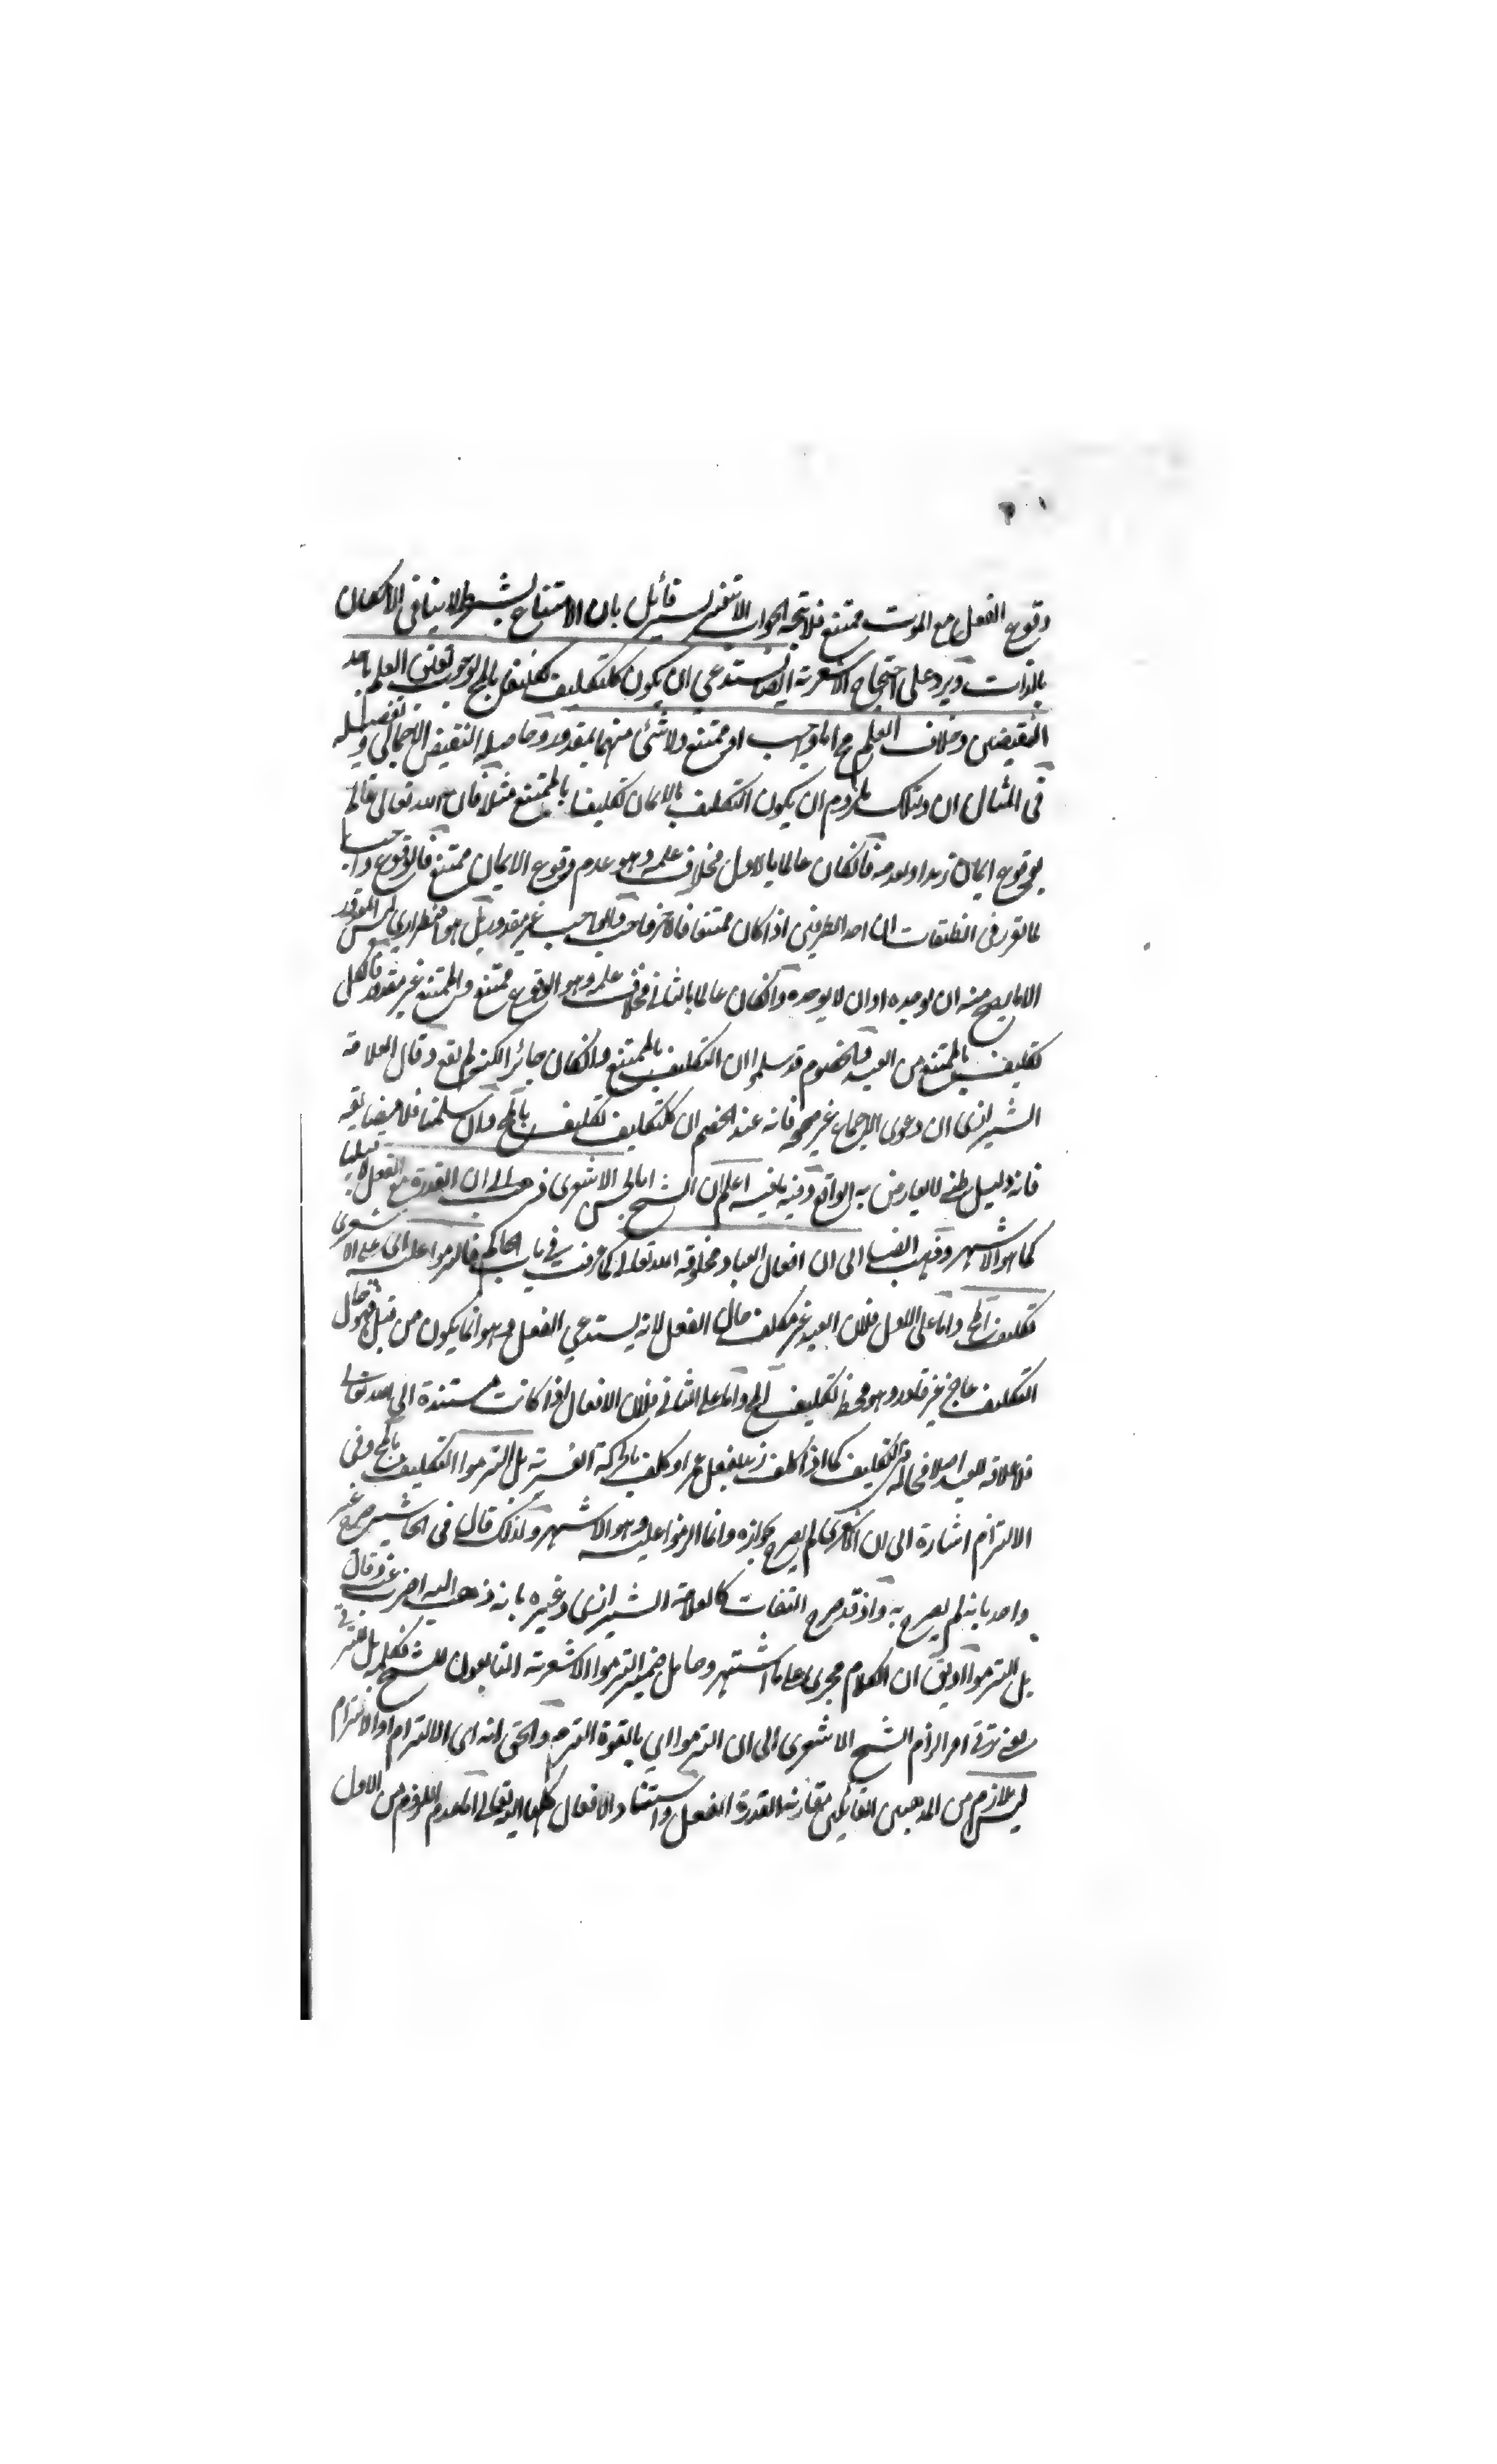 وقوع الفعل مع الموت ممتنع فلا يتجه الجواب الا بتفسير قائل بان الامتناع بشرط لا ينافي الامكان
بالذات ويرد على احتجاج الاشعرية ايضا يستدعي ان يكون كل تكليف تكليفا بالمح لوجوب تعلق العلم باحد
النقيضين وخلاف العلم مح اما واجب او ممتنع ولا شئ منهما بمقدور وحاصله النقيض الاجمالي وتفصيله
في المثال ان دليلك يلزم ان يكون التكليف بالايمان تكليفا بالممتنع مثلا فان الله تعالى عالم
بوقوع ايمان زيد او بعدمه فانكان عالما بالاول فخلاف علمه وهو عدم وقوع الايمان ممتنع فالوقوع واجب
لما تقرر في الطبقات ان احد الطرفين اذا كان ممتنعا فالاخر واجب والواجب غير مقدور بل هو اضطراري ليس المقدور
الا ما يصح منه ان يوجده او ان لا يوجده وانكان عالما بالثاني فخلاف علمه وهو الوقوع ممتنع والممتنع غير مقدور فالكل
تكليف بالممتنع من العبد والخصوم قد سلموا ان التكليف بالممتنع وانكان جائزا لكنه لم يقع وقال العلامة
الشيرازي ان دعوى الاجماع غير صحيحة فانه عند الخصم ان كل تكليف تكليف بالمح وان سلمنا فلا مضايقة
فانه دليل ظني لا يعارض به الواقع وفيه ما فيه اعلم ان الشيخ ابا الحسن الاشعري ذهب الى ان القدرة مع الفعل لا قبلها
كما هو الاشهر وذهب ايضا الى ان افعال العباد مخلوقة الله تعالى كما عرفت في باب الحاكم فالزموا عليه اي على الاشعري
تكليف المح واما على الاول فلان العبد غير مكلف حال الفعل لانه يستدعي الفعل وهو انما يكون من قبل فهو حال
التكليف عاجز غير قادر وهو محض تكليف المح واما على الثاني فلان الافعال اذا كانت مستندة الى الله تعالى
فلا علاقة للعبد اصلا في حالة التكليف كما اذا كلف زيد بفعل عمرو او كلف بالحركة القسرية بل التزموا التكليف بالمح وفي
الالتزام اشارة الى ان الاشعري لم يصرح بجوازه وانما الزموا عليه وهو الاشهر ولذلك قال في الحاشية صرح غير
واحد بانه لم يصرح به واذ قد صرح الثقات كالعلامة الشيرازي وغيره بانه ذهب اليه اضرب عنه وقال
بل التزموا او يق ان الكلام مجرى على ما اشتهر وحاصل ضمير التزموا الاشعرية التابعون للشيخ فكلمة بل
يعني ترقى امر الزام الشيخ الاشعري الى ان التزموا اي بالقوة التزم والحق انه اي الالتزام او الالزام
ليس بلازم من المذهبين القائلين مقارنة القدرة الفعل واستناد الافعال كلها اليه تعالى اما عدم اللزوم من الاول